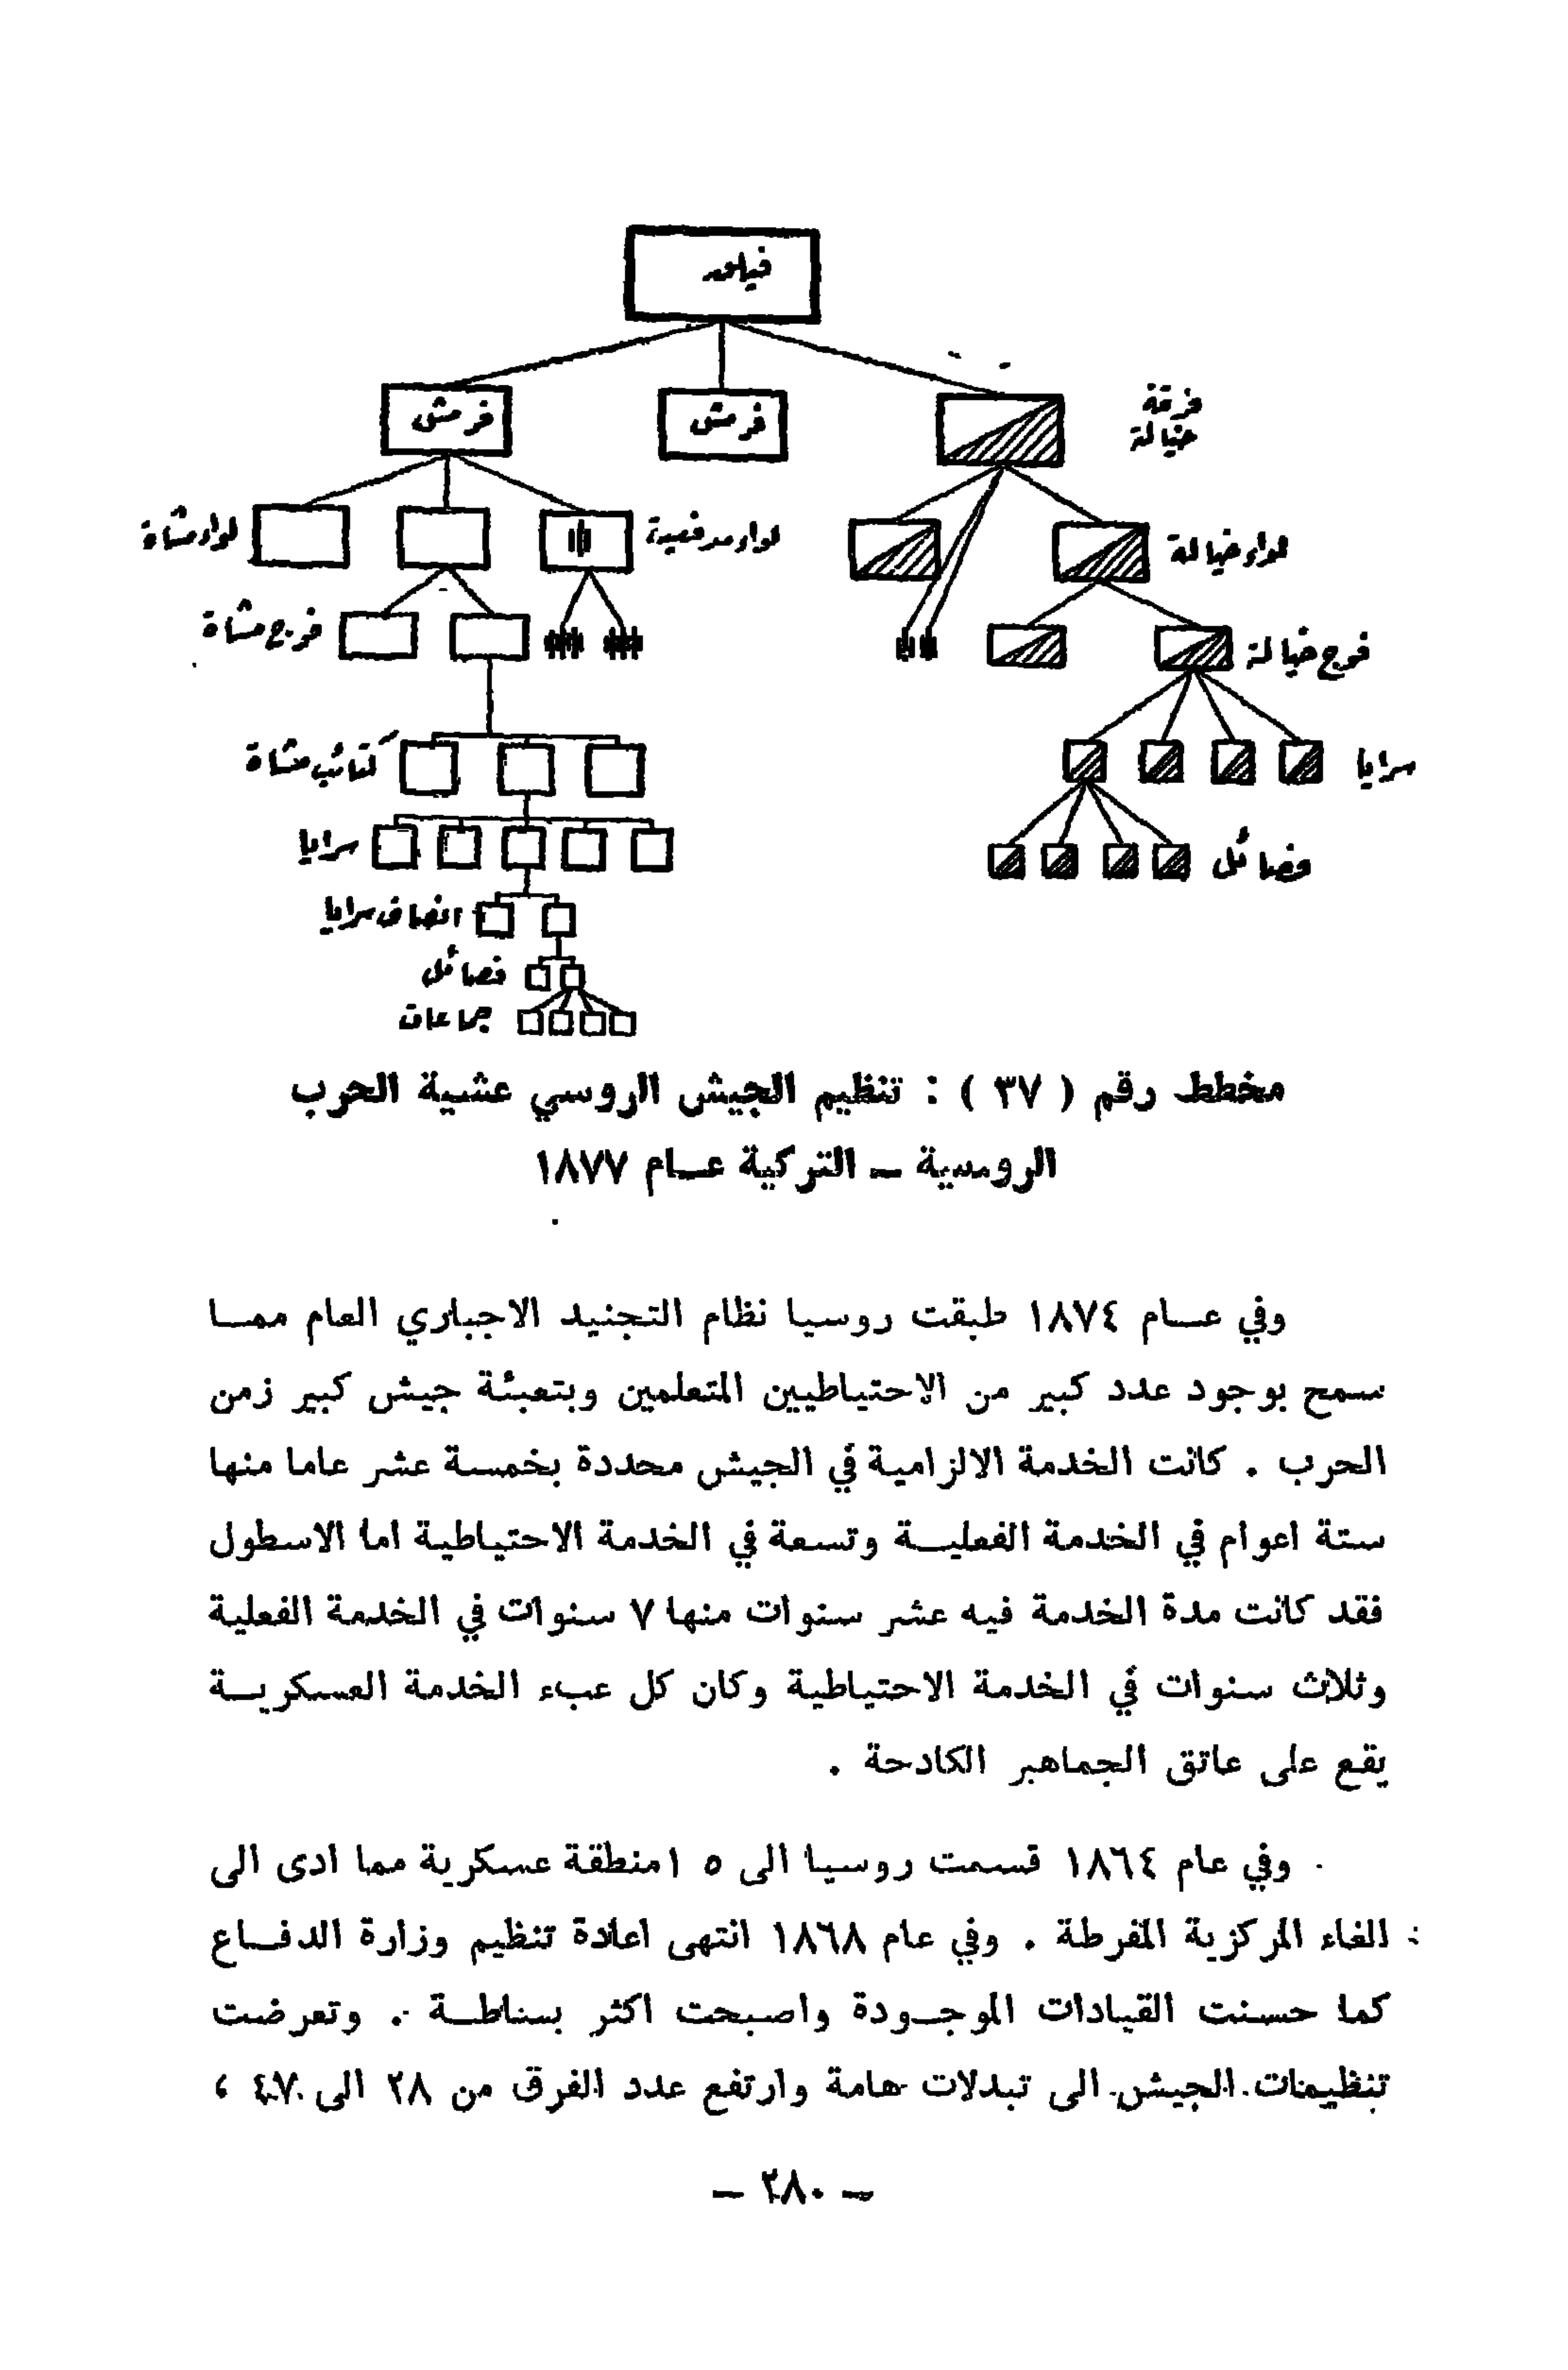 فيلق
فر مش
فر مش
فرقة
خيالة
لواء مشاة
لواء مدفعية
لواء خيالة
فوج مشاة
فوج خيالة
كتائب مشاة
سرايا
سرايا
فصائل
انصاف سرايا
فصائل
جماعات
مخطط رقم ( ٣٧ ) : تنظيم الجيش الروسي عشية الحرب
الروسية – التركية عــام ١٨٧٧
وفي عــام ١٨٧٤ طبقت روسيا نظام التجنيد الاجباري العام ممــا
سمح بوجود عدد كبير من الاحتياطيين المتعلمين وبتعبئة جيش كبير زمن
الحرب . كانت الخدمة الالزامية في الجيش محددة بخمسة عشر عاما منها
ستة اعوام في الخدمة الفعليــة وتسعة في الخدمة الاحتياطية اما الاسطول
فقد كانت مدة الخدمة فيه عشر سنوات منها ٧ سنوات في الخدمة الفعلية
وثلاث سنوات في الخدمة الاحتياطية وكان كل عبء الخدمة العسكريــة
يقع على عاتق الجماهير الكادحة .
وفي عام ١٨٦٤ قسمت روسيا الى ١٥ منطقة عسكرية مما ادى الى
الغاء المركزية المفرطة . وفي عام ١٨٦٨ انتهى اعادة تنظيم وزارة الدفــاع
كما حسنت القيادات الموجــودة واصبحت اكثر بساطــة . وتعرضت
تنظيمات الجيش الى تبدلات هامة وارتفع عدد الفرق من ٢٨ الى ٤٧ ،
– ٢٨٠ –